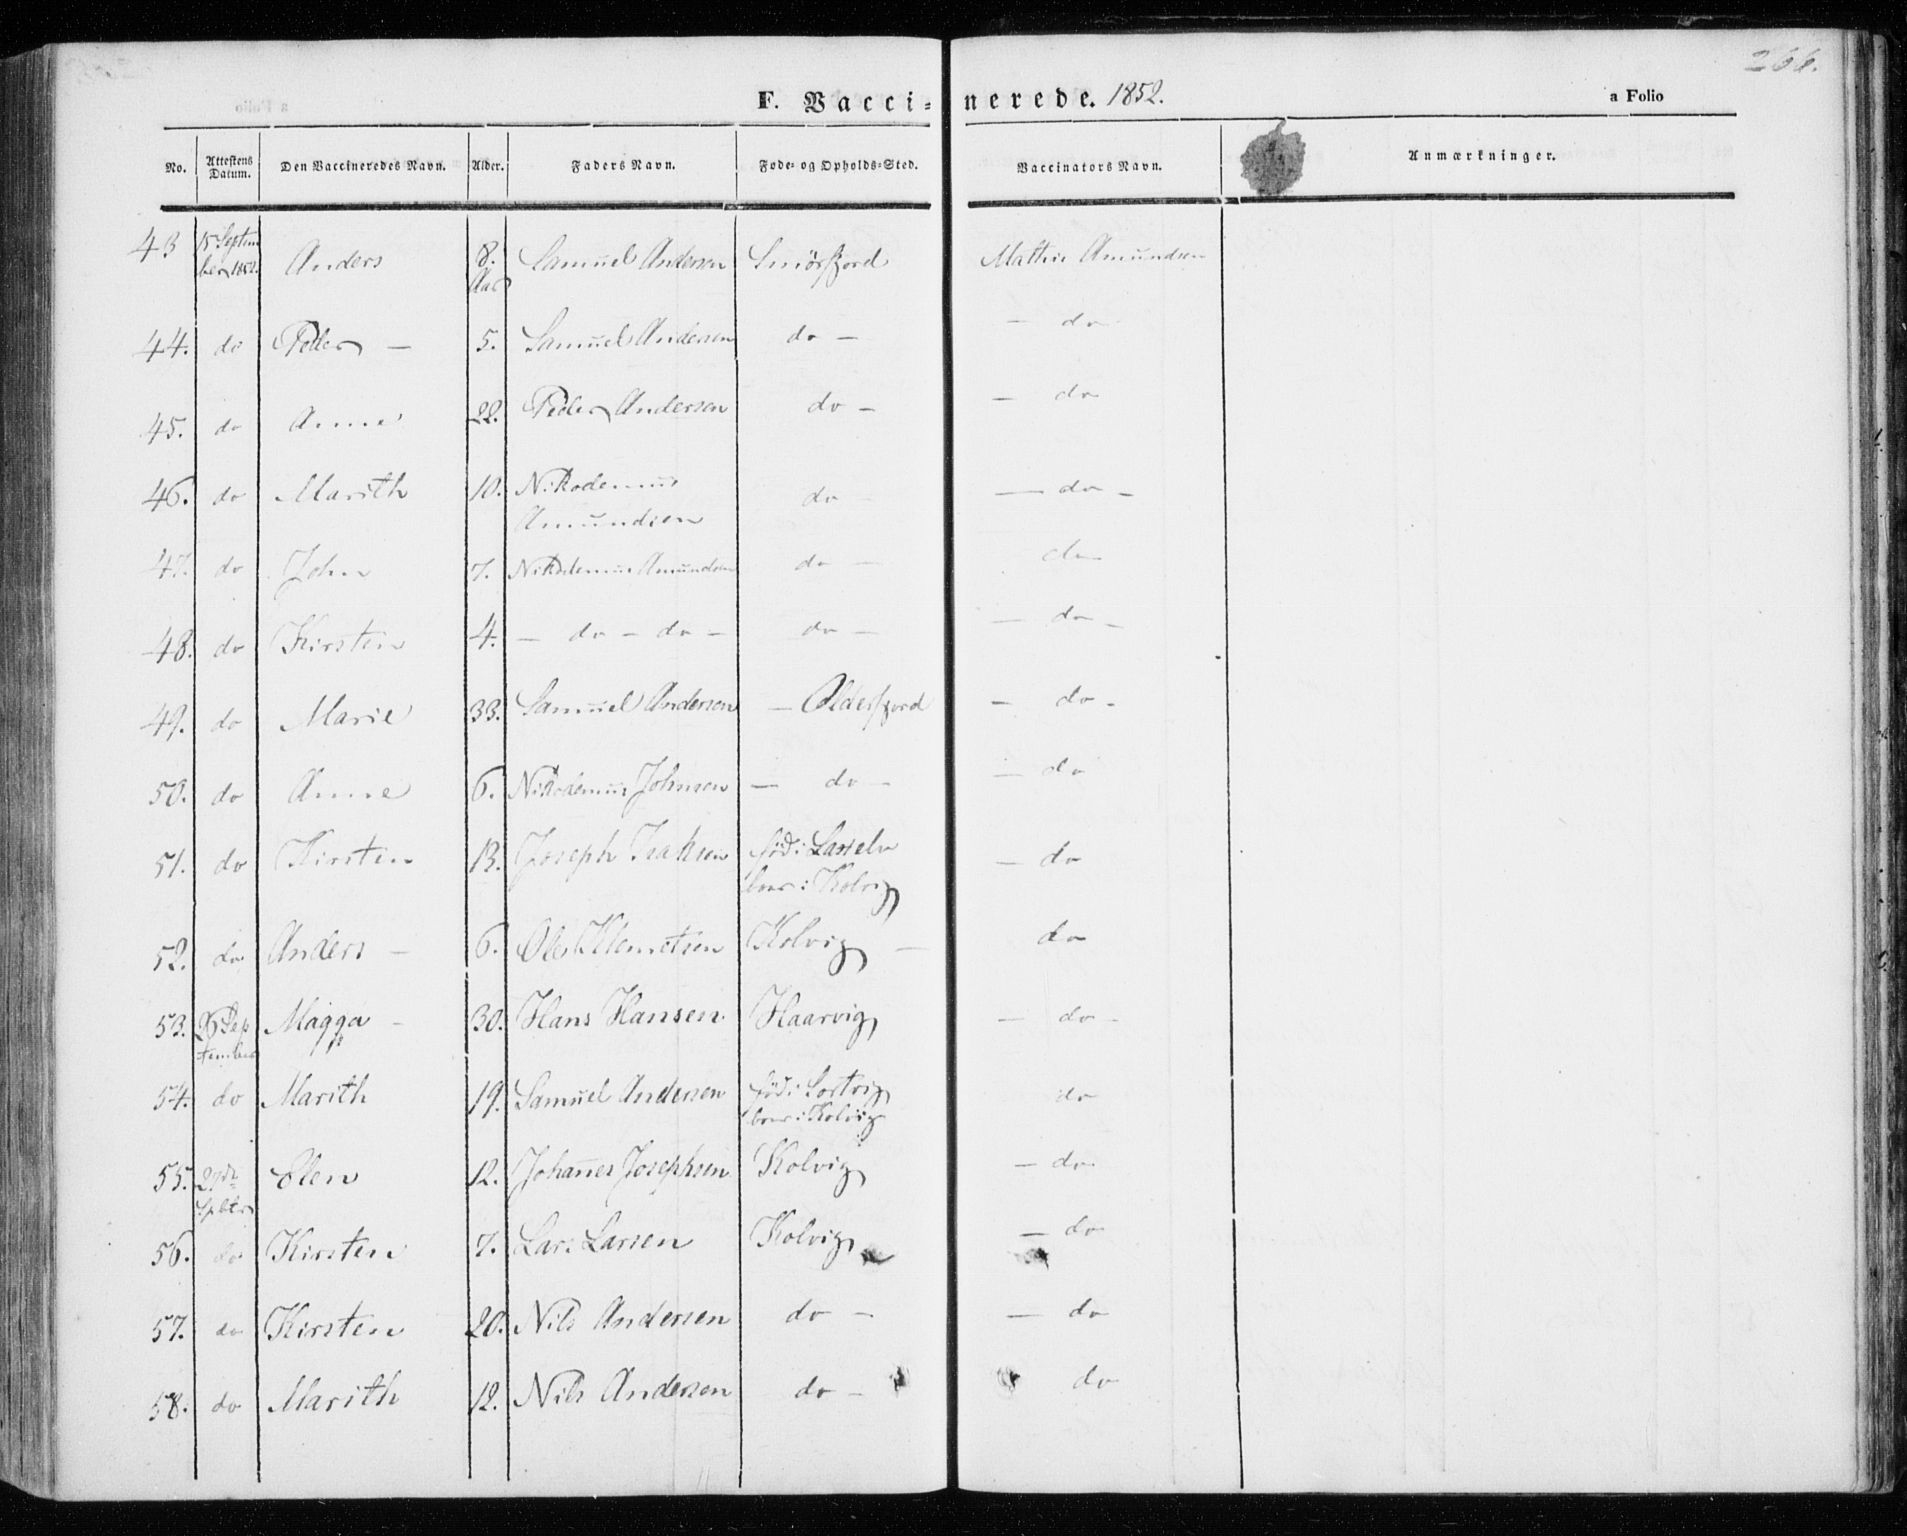 266.
F. Vacci=nerede. 1852.
a Folio
No. Attestens Datum. Den Vaccineredes Navn. Alder. Faders Navn. Føde- og Opholds-Sted. Vaccinators Navn. Anmærkninger.
43 15 Septem
ber 1852. Anders 8. Aar Samuel Andersen Smörfjord Mathis Amundsen
44. do Peder — 5. Samuel Andersen do — — do
45. do Anne 22. Peder Andersen do — — do
46. do Marith 10. Nikodemus
Amundsen do — — do —
47. do John 7. Nikodemus Amundsen do — do
48. do Kirsten 4. — do — do — do — — do —
49. do Marie 33. Samuel Andersen — Olderfjord — do -
50. do Anne 6. Nikodemus Johnsen — do — — do
51. do Kirsten 13. Joseph Isaksen föd i Lasselv
boer i Kolvig — do
52. do Anders — 6. Ole Klemetsen Kolvig — do
53. Sep
tember Magga — 30. Hans Hansen Haarvig — do —
54. do Marith 19. Samuel Andersen föd i Sortvig
boer i Kolvig do
55. 29de
Septbr Elen 12. Johanes Josephsen Kolvig — do
56. do Kirsten 7. Lars Larsen Kolvig — do
57. do Kirsten 20. Nils Andersen do — — do
58. do Marith 12. Nils Andersen do — do